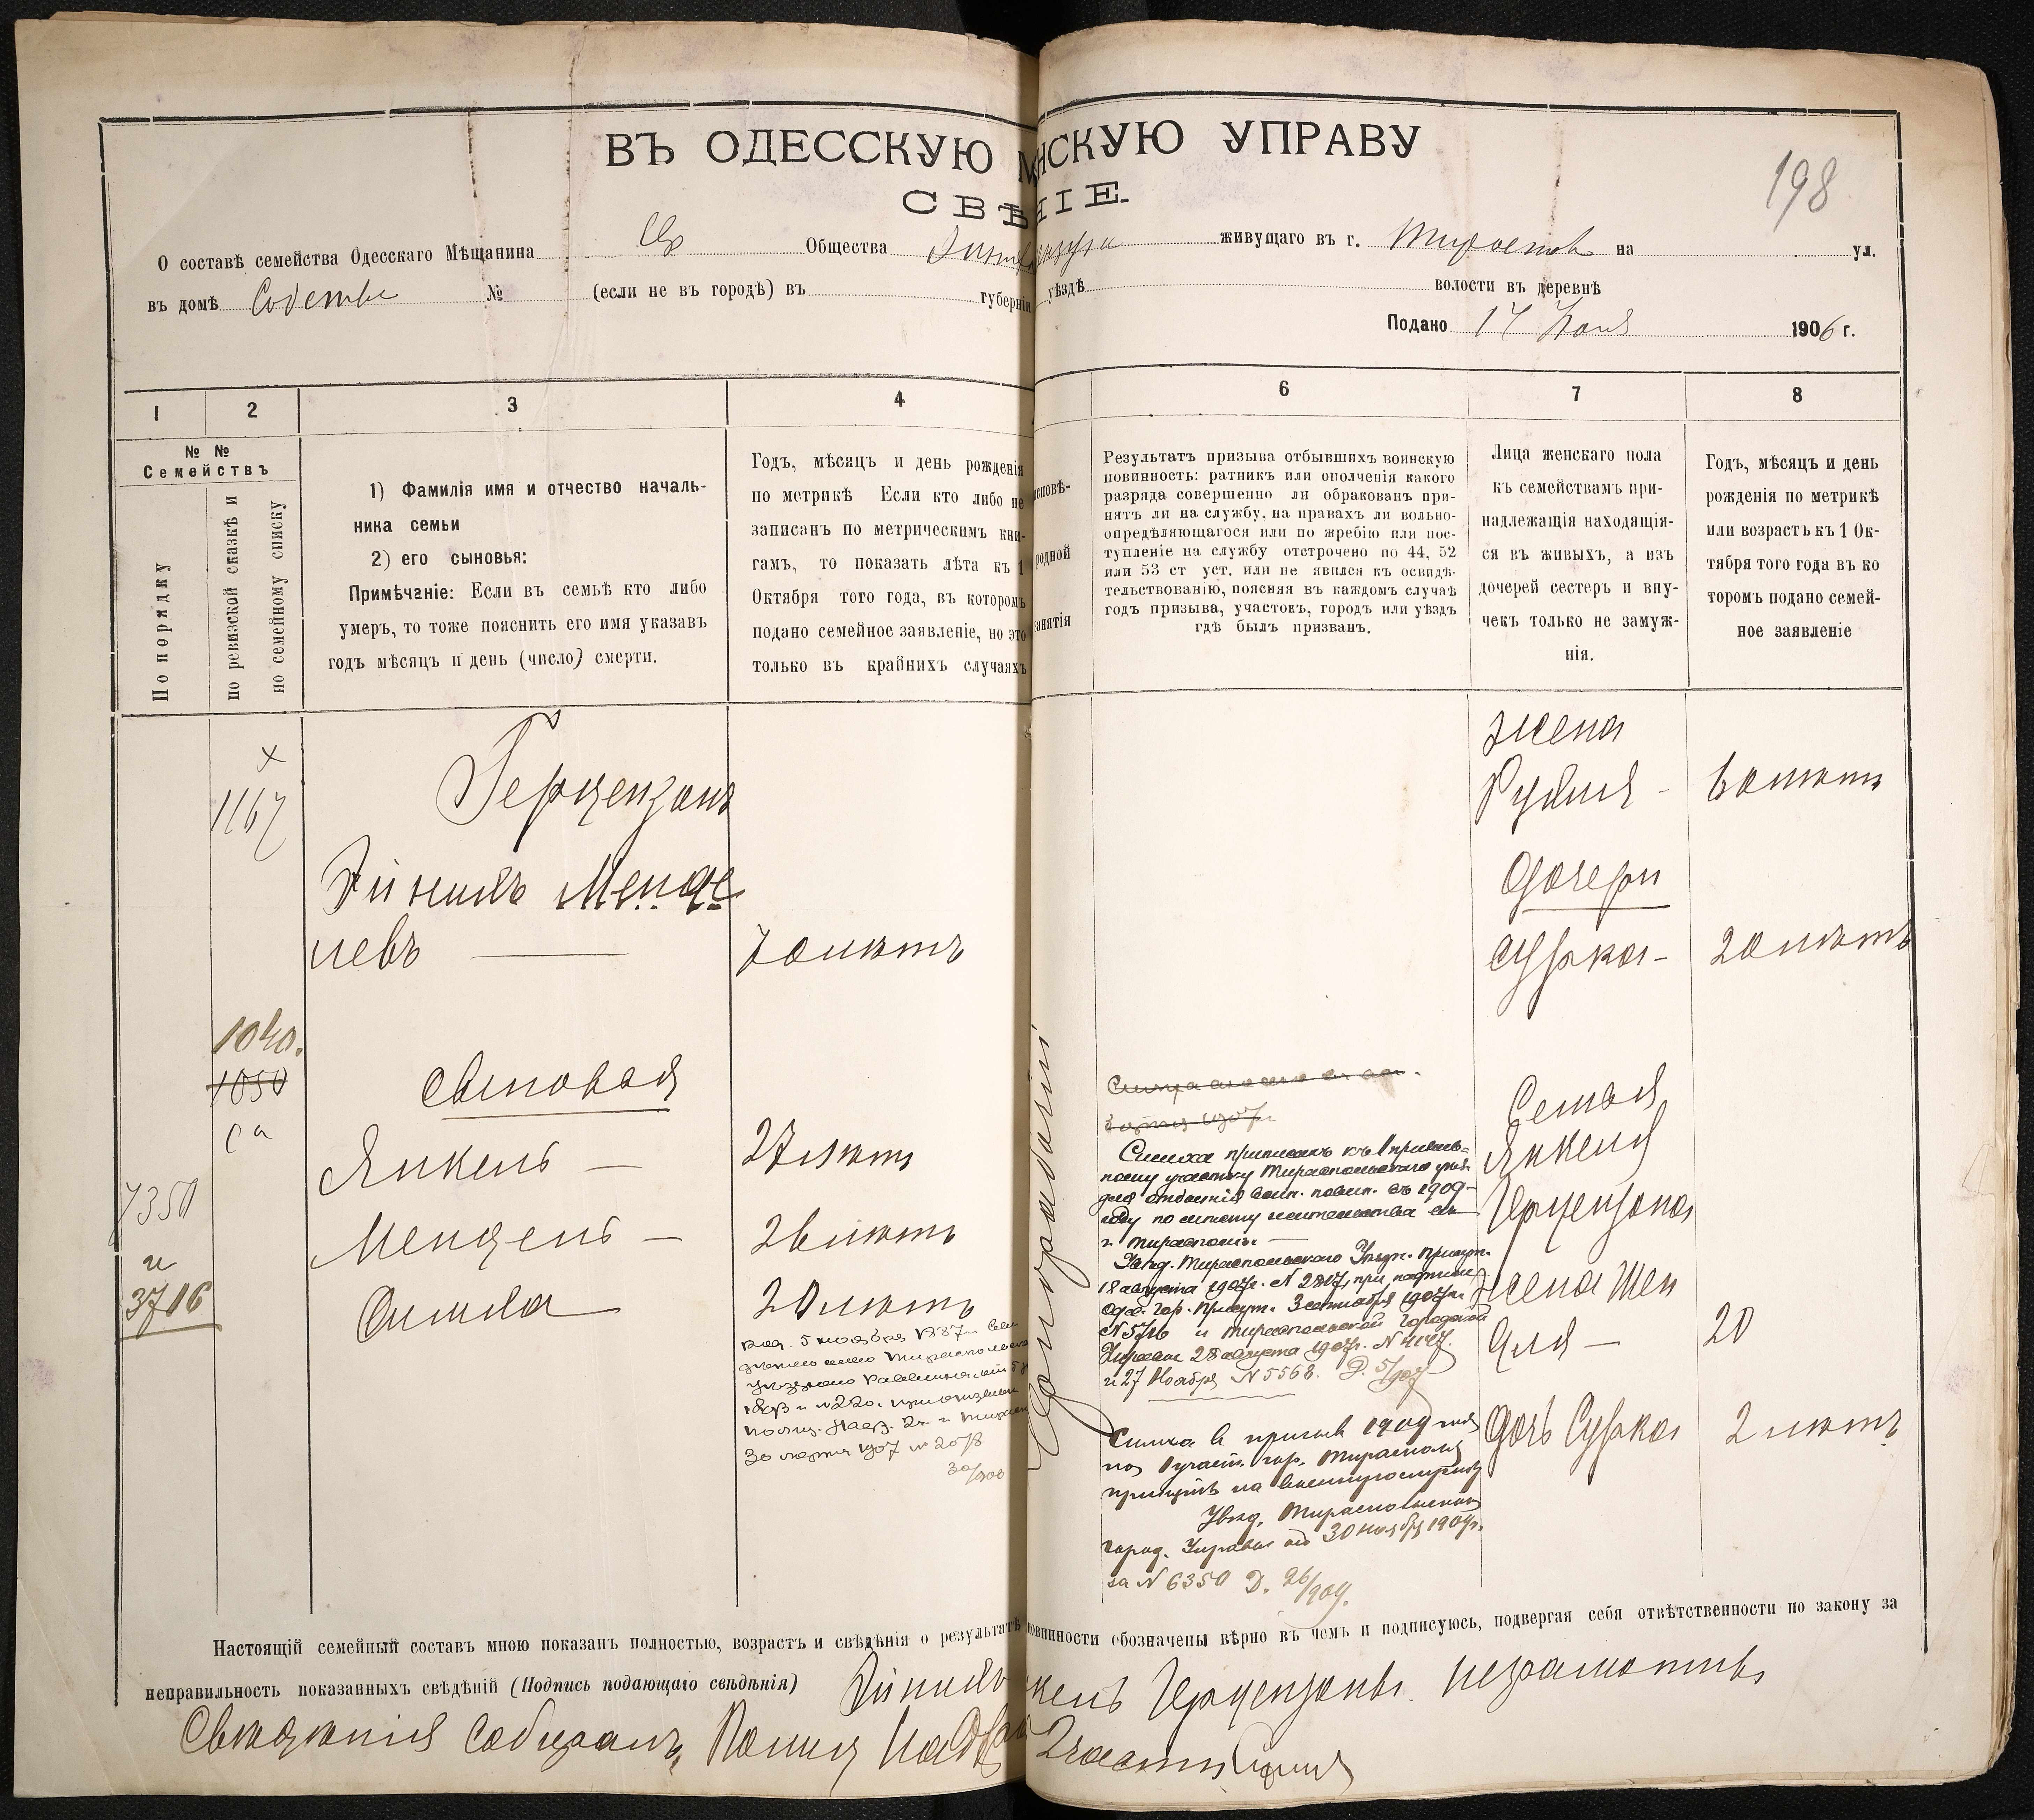 ВЪ ОДЕССКУЮ М НСКУЮ УПРАВУ
198
СВѢ НІЕ.
О составѣ семейства Одесскаго Мѣщанина Евр Общества живущаго въ г. Тирасполь на ул.
въ домѣ № (если не въ городѣ) въ губерніи уѣздѣ волости въ деревнѣ
Подано 17 1906 г.
1 2 3 4 6 7 8
№ №
Семействъ
По порядку
по ревизской сказкѣ и
по семейному списку
1) Фамилія имя и отчество началь-
ника семьи
2) его сыновья:
Примѣчаніе: Если въ семьѣ кто либо
умеръ, то тоже пояснить его имя указавъ
годъ мѣсяцъ и день (число) смерти.
Годъ, мѣсяцъ и день рожденія
по метрикѣ Если кто либо не
записанъ по метрическимъ кни-
гамъ, то показать лѣта къ 1
Октября того года, въ которомъ
подано семейное заявленіе, но это
только въ крайнихъ случаяхъ
исповѣ-
родной
занятія
Результатъ призыва отбывшихъ воинскую
повинность: ратникъ или ополченія какого
разряда совершенно ли обракованъ при-
нятъ ли на службу, на правахъ ли вольно-
опредѣляющагося или по жребію или пос-
тупленіе на службу отсрочено по 44, 52
или 53 ст уст. или не явился къ освидѣ-
тельствованію, поясняя въ каждомъ случаѣ
годъ призыва, участокъ, городъ или уѣздъ
гдѣ былъ призванъ.
Лица женскаго пола
къ семействамъ при-
надлежащія находящія-
ся въ живыхъ, а изъ
дочерей сестеръ и вну-
чекъ только не замуж-
нія.
Годъ, мѣсяцъ и день
рожденія по метрикѣ
или возрастъ къ 1 Ок-
тября того года въ ко
торомъ подано семей-
ное заявленіе
х
1167
Герцензонъ
Менде
левъ — 70 лѣтъ
1040.
1050
са
сыновья
Янкель — 27 лѣтъ
7350
Мендель — 26 лѣтъ
и
3706
Симха — 20 лѣтъ
род. 5 ноября 1887
30 марта 1907 № 2078
Симха приписанъ къ 1 призыв-
ному участку Тираспольскаго уѣз.
для отбытія воин. повин. въ 1909
году по мѣсту жительства въ
г. Тирасполь. —
Увѣд. Тираспольскаго Уѣзд. Присут.
18 августа 1907г. № 2817, при надписи
Одес. Гор. Присут. 3 сентября 1907г.
№ 5716 и Тираспольской Городской
Управы 28 августа 1907г. № 4147.
и 27 Ноября № 5568. Д. 5/907
Симха въ призывъ 1909 года
по 1 участ. гор. Тирасполя
принятъ на военную службу
Увѣд. Тираспольской
город. Управы отъ 30 ноября 1909г.
за № 6350 Д. 26/909.
жена
Рухля - 60 лѣтъ
дочери
Сурка - 20 лѣтъ
Семья
Янкеля
Герцензона
жена Шен
для — 20
дочь Сурка 2 лѣтъ
Настоящій семейный составъ мною показанъ полностью, возрастъ и свѣдѣнія о результатѣ повинности обозначены вѣрно въ чемъ и подписуюсь, подвергая себя отвѣтственности по закону за
неправильность показанныхъ свѣдѣній (Подпись подающаго свѣдѣнія) Герцензонъ. неграмотный
Свѣдѣнія собиралъ, Полиц Надзир 2 части